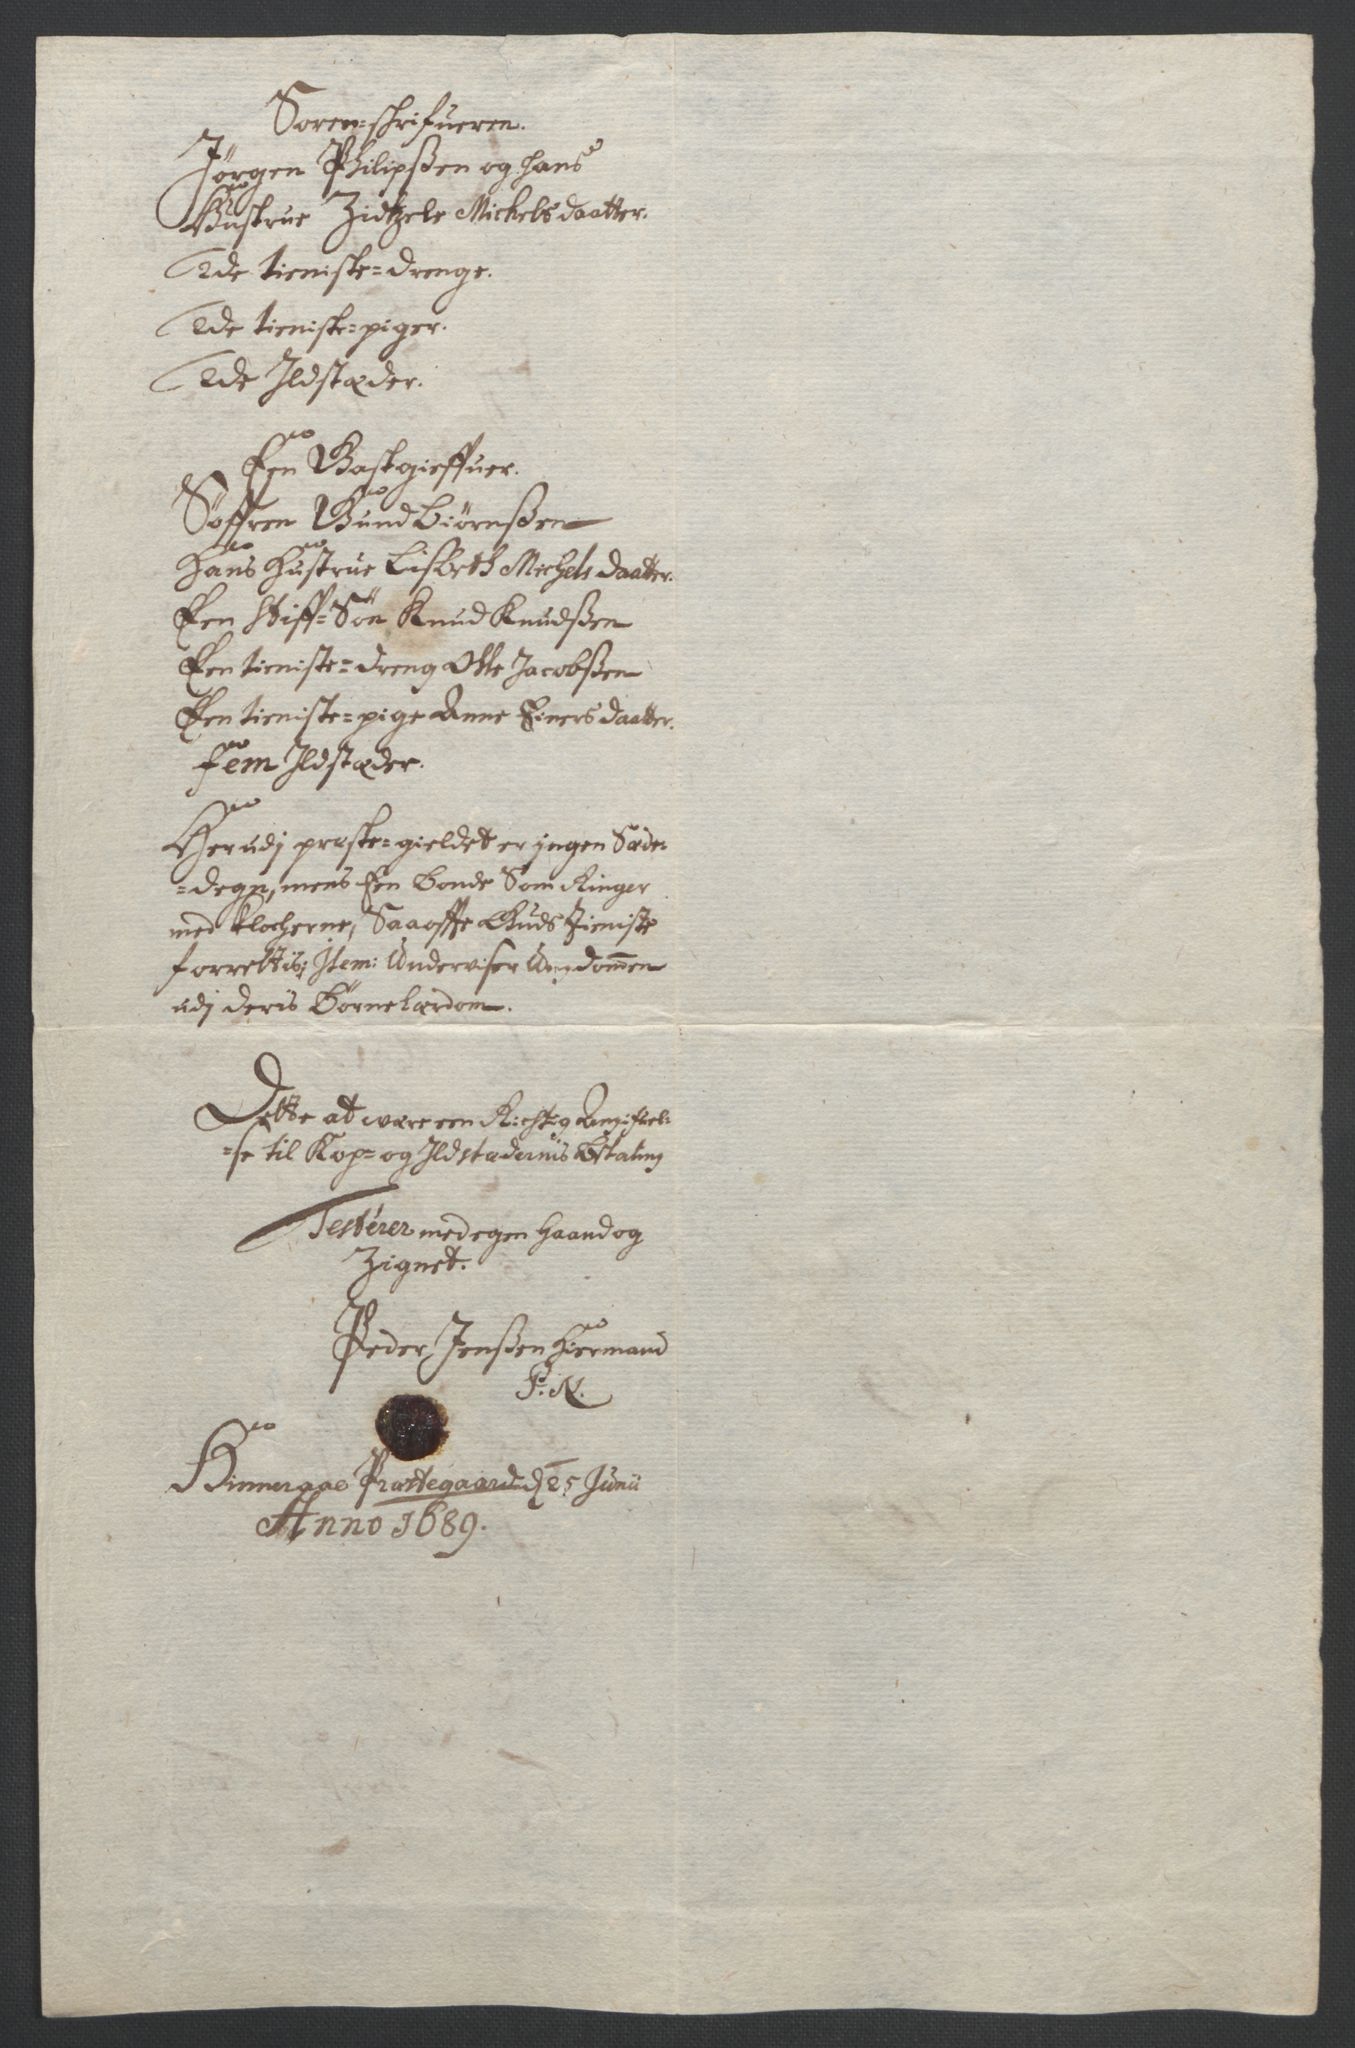 Soren-schrifueren.
Jørgen Philipsßen og hans
Hustrue Zidtzele Michelsdaatter.
2de tieniste=drenge.
2de tieniste=piger.
2de Ildstæder.
Een Gastgieffuer.
Søffren Gundbiørnßen
Hans Hustrue Lisbeth Michels daatter.
Een Stiff=Søn Knud Knudßen
Een tieniste=dreng Otte Jacobßen
Een tieniste=pige Anne Einers daatter.
fem Ildstæder.
Her udj præste=gieldet er jngen Sæde-
=degn, mens Een Bonde Som Ringer
med klocherne, Saaofte Guds Tieniste
forrettis; Item: Underviser Ungdommen
udj deris Børnelærdom.
Dette at være een Richtig Angifuel-
=se til Kop= og Ildstædernis Betaling
Testerer med egen Haand og
Zignet.
Peder Jenßen Hiermand
Hinneraae Præstegaard d. 25 Junii
Anno 1689.